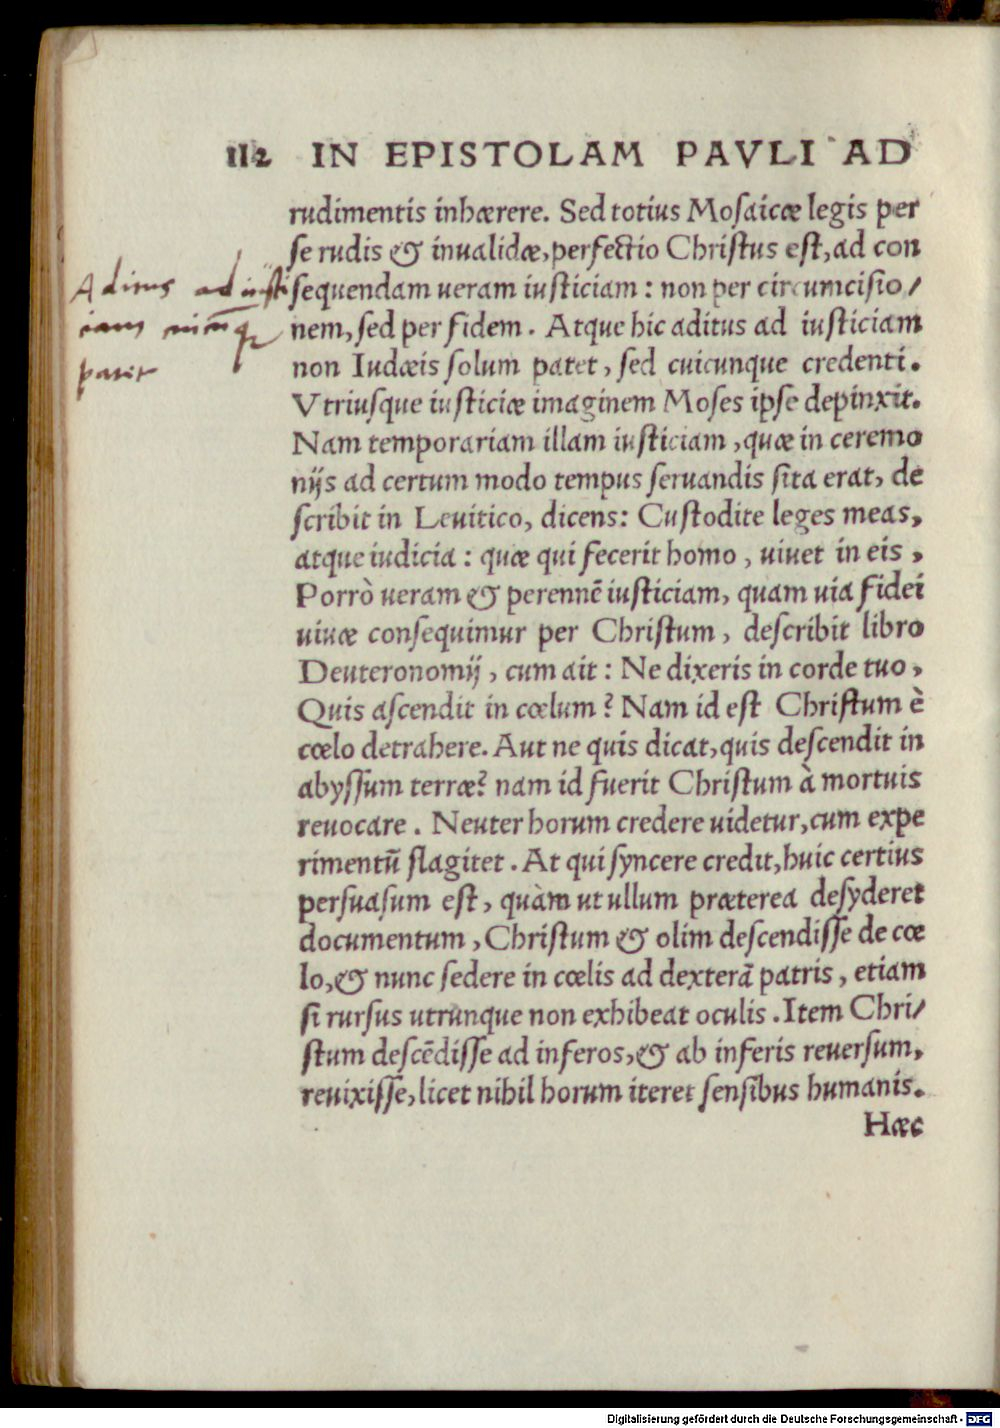 112 IN EPISTOLAM PAVLI AD
rudimentis inhærere. Sed totius Mosaicæ legis per
se rudis & inualidæ, perfectio Christus est, ad con
sequendam ueram iusticiam: non per circumcisio/
nem, sed per fidem. Atque hic aditus ad iusticiam
non Iudæis solum patet, sed cuicunque credenti.
Vtriusque iusticiæ imaginem Moses ipse depinxit.
Nam temporariam illam iusticiam, quæ in ceremo
nijs ad certum modo tempus seruandis sita erat, de
scribit in Leuitico, dicens: Custodite leges meas,
atque iudicia: quæ qui fecerit homo, uiuet in eis,
Porrò ueram & perennē iusticiam, quam uia fidei
uiuæ consequimur per Christum, describit libro
Deuteronomij, cum ait: Ne dixeris in corde tuo,
Quis ascendit in cœlum? Nam id est Christum è
cœlo detrahere. Aut ne quis dicat, quis descendit in
abyssum terræ? nam id fuerit Christum à mortuis
reuocare. Neuter horum credere uidetur, cum expe
rimentū flagitet. At qui syncere credit, huic certius
persuasum est, quàm ut ullum præterea desyderet
documentum, Christum & olim descendisse de cœ
lo, & nunc sedere in cœlis ad dexterā patris, etiam
si rursus utrunque non exhibeat oculis. Item Chri/
stum descēdisse ad inferos, & ab inferis reuersum,
reuixisse, licet nihil horum iteret sensibus humanis.
Hæc
Aditus ad iusti
ciam
patet
Digitalisierung gefördert durch die Deutsche Forschungsgemeinschaft - DFG